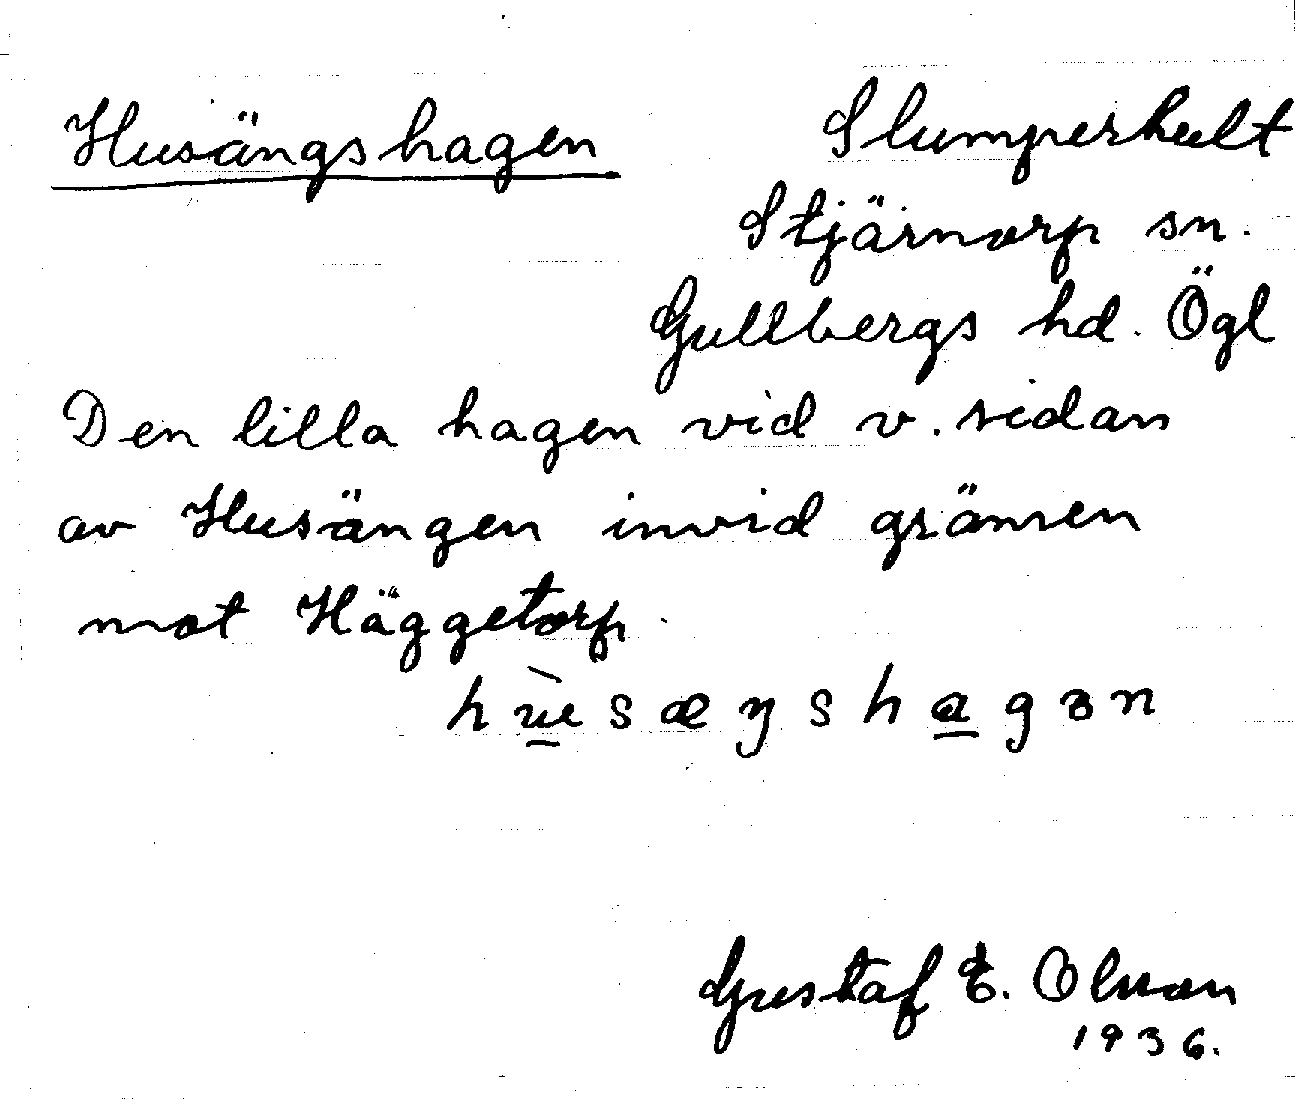 Husängshagen
Slumperhult
Stjärnorp sn.
Gullbergs hd. Ögl
Den lilla hagen vid v. sidan
av Husängen invid gränsen
mot Häggetorp.
hùsæŋshagən
Gustaf E. Olsson
1936.